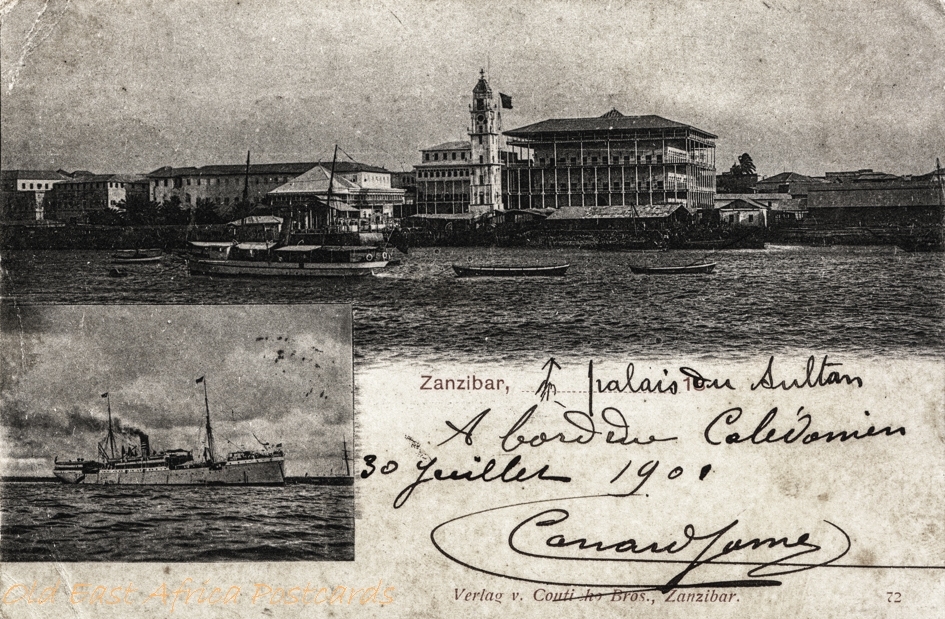 Zanzibar, palais du Sultan
A bord du Calédonien
30 Juillet 1901
Verlag v. Coutinho Bros., Zanzibar. 72
Old East Africa Postcards